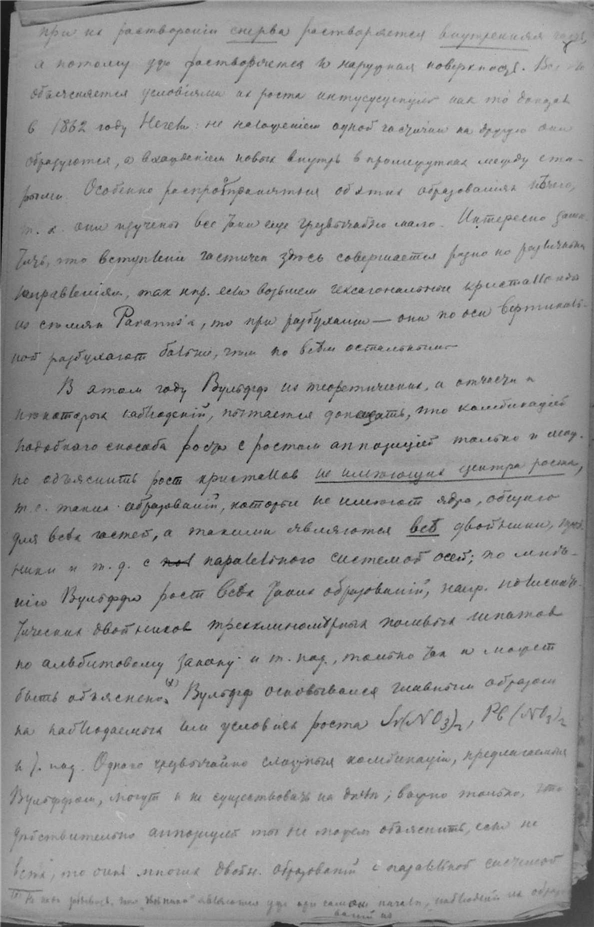 при их растворенiи сперва растворяется внутренняя часть,
а потому уже растворяется и наружная поверхность. Все
объясняется условiями их роста интусусцепцiи как то доказал
в 1862 году Негели: не наложенiем одной частички на другую они
образуются, а вхожденiем новых внутрь в промежутках между ста-
рыми. Особенно распространяться об этих образованiях нечего,
т. к. они изучены все таки еще чрезвычайно мало. Интересно заме-
тить, что вступленiе частичек здесь совершается разно по различным
направленiям, так напр. если возьмем гексагональные кристаллоиды
из семян, то при разбуханiи — они по оси вертикаль-
ной разбухают больше, чем по всем остальным.
В этом году Вульфф из теоретических, а отчасти и
некоторых наблюденiй, пытается доказать, что комбинацiей
подобного способа роста с ростом аппозицiей только и мож-
но объяснить рост кристаллов не имеющих центра роста,
т. е. таких образованiй, которые не имеют ядра, общего
для всех частей, а такими являются все двойники, трой-
ники и т. д. с параллельного системой осей; по мне-
нiю Вульффа рост всех таких образованiй, напр. полисинте-
тических двойников триклиномерных полевых шпатов
по альбитовому закону и т. под., только так и может
быть объяснено.(х) Вульфф основывался главным образом
на наблюдаемых им условiях роста Sr(NO3)2, Pb(NO3)2
и т. под. Одного чрезвычайно сложныя комбинацiи, предлагаемыя
Вульффом, могут и не существовать на деле; важно только, что
действительно аппозицiей мы не можем объяснить, если не
все, то очень многих двойн. образованiй с параллельной системой